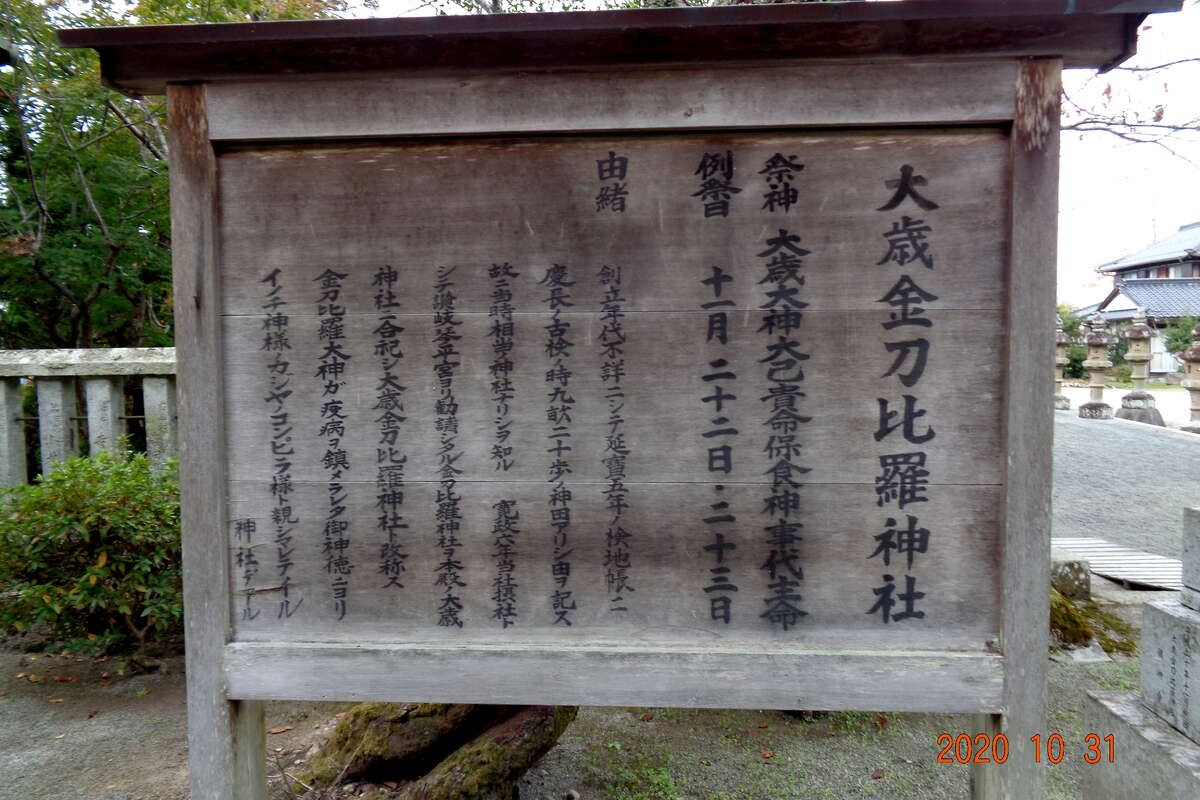 大歳金刀比羅神社
祭神 大歳大神大己貴命保食神事代主命
例祭日 十一月 二十二日・二十三日
由緒
創立年代不詳ニシテ延寶五年ノ検地帳ニ
慶長ノ古検ノ時九畝二十歩ノ神田アリシ由ヲ記ス
故ニ当時相当ノ神社ナリシヲ知ル 寛政六年当社摂社ト
シテ讃岐琴平宮ヨリ勧請シタル金刀比羅神社ヲ本殿ノ大歳
神社ニ合祀シ大歳金刀比羅神社ト改称ス
金刀比羅大神ガ疫病ヲ鎮メラレタ御神徳ニヨリ
イノチ神様ノカシヤノコンピラ様ト親シマレテイル
神社デアル
2020 10 31